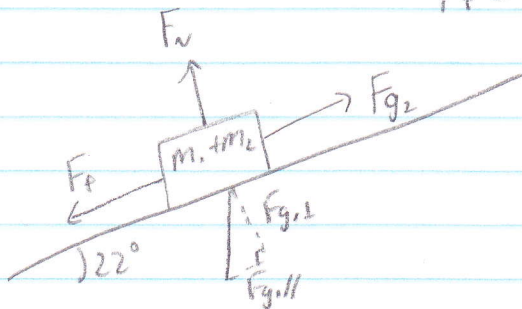 FN
Fg2
m1+m2
Ff
Fg1⊥
22°
Fg1//